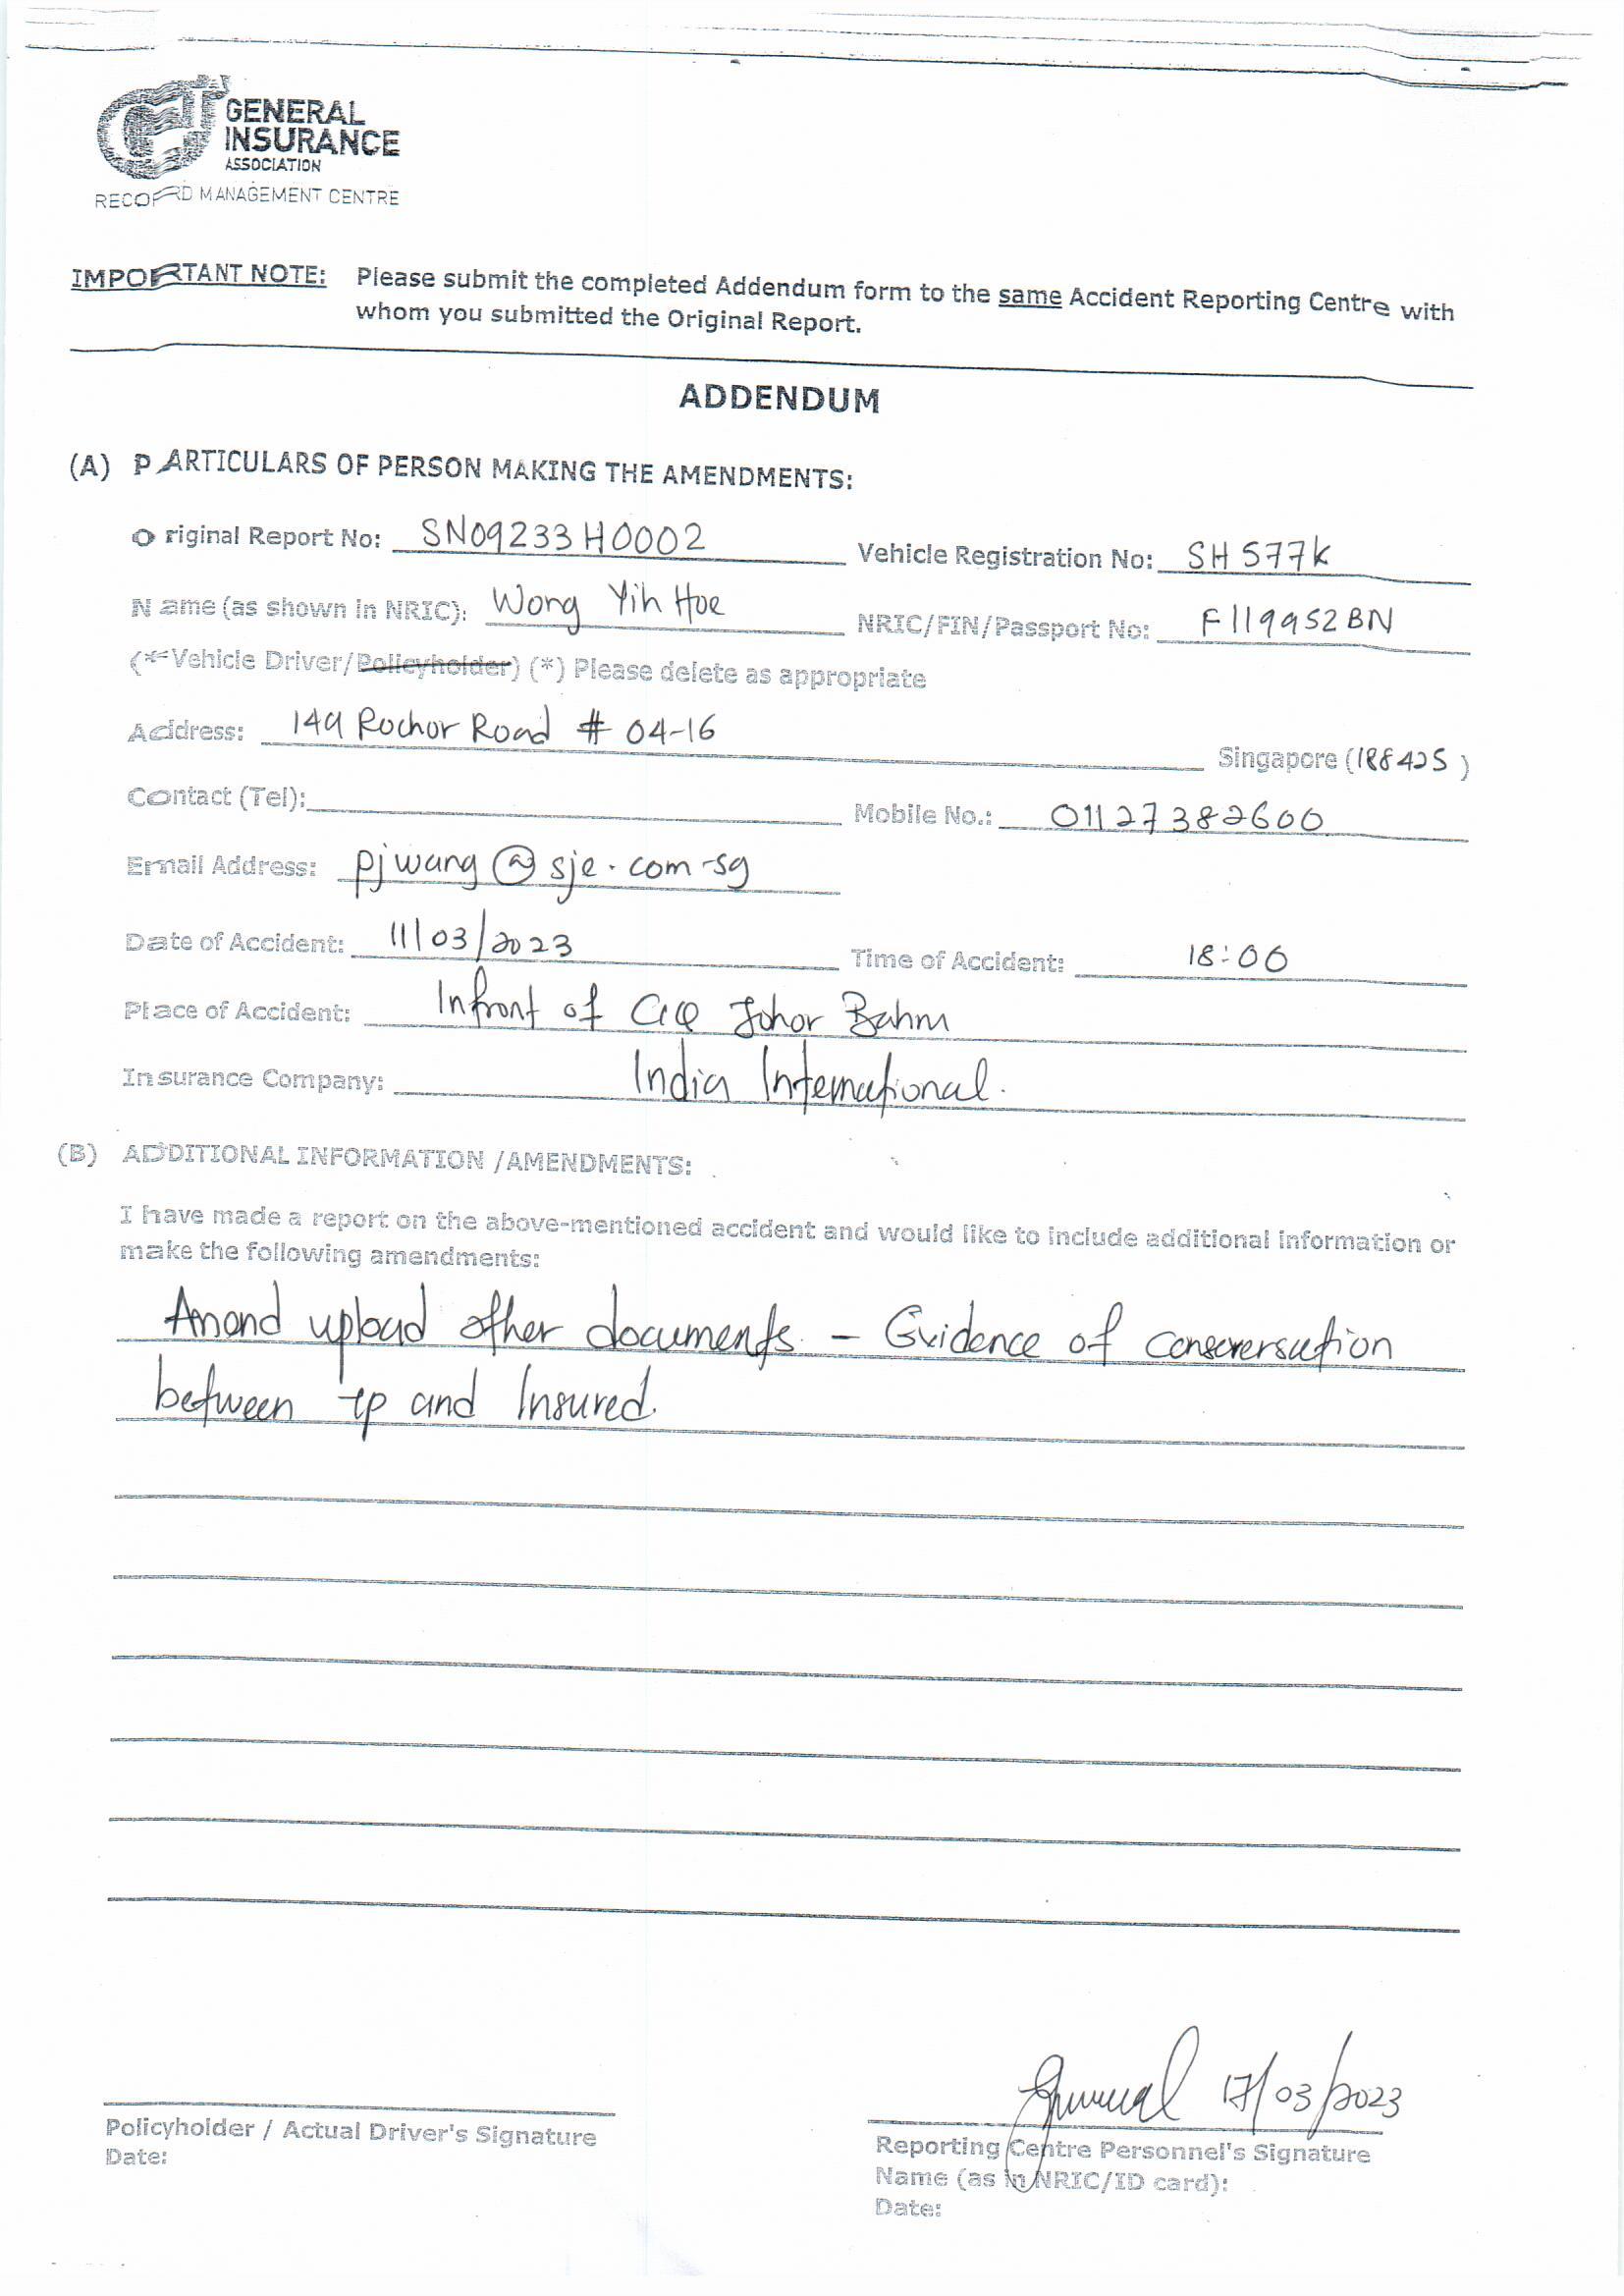 GENERAL
INSURANCE
ASSOCIATION
RECORD MANAGEMENT CENTRE
IMPORTANT NOTE: Please submit the completed Addendum form to the same Accident Reporting Centre with
whom you submitted the Original Report.
ADDENDUM
(A) PARTICULARS OF PERSON MAKING THE AMENDMENTS:
Original Report No: SN09233H0002 Vehicle Registration No: SH577K
Name (as shown in NRIC): Wong Yih Hoe NRIC/FIN/Passport No: F119952BN
(*Vehicle Driver/Policyholder) (*) Please delete as appropriate
Address: 149 Rochor Road # 04-16 Singapore (188425)
Contact (Tel): Mobile No.: 01127382600
Email Address: pjwang@sje.com.sg
Date of Accident: 11/03/2023 Time of Accident: 18:00
Place of Accident: Infront of CIQ Johor Bahru
Insurance Company: India International.
(B) ADDITIONAL INFORMATION /AMENDMENTS:
I have made a report on the above-mentioned accident and would like to include additional information or
make the following amendments:
upload other documents. - Evidence of
between tp and Insured.
17/03/2023
Policyholder / Actual Driver's Signature
Date:
Reporting Centre Personnel's Signature
Name (as in NRIC/ID card):
Date: